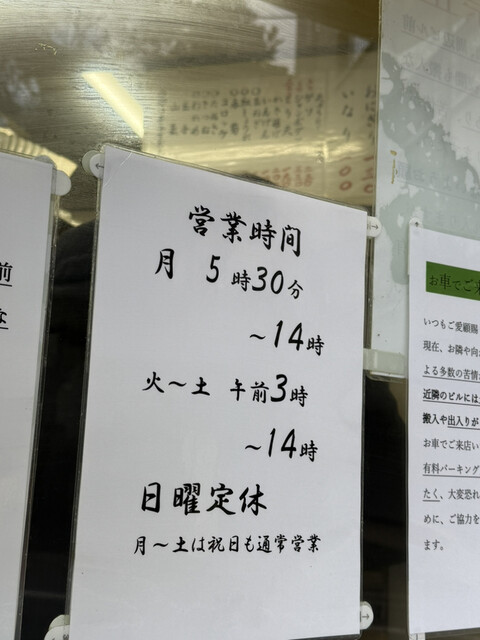 営業時間
月 5時30分
～14時
火～土 午前3時
～14時
日曜定休
月～土は祝日も通常営業
前
お車でご来
いつもご愛顧賜
現在、お隣や向か
よる多数の苦情
近隣のビルには
搬入や出入りが
お車でご来店い
有料パーキング
たく、大変恐れ
めに、ご協力を
ます。
おにぎり 一三〇
いなり 一〇〇